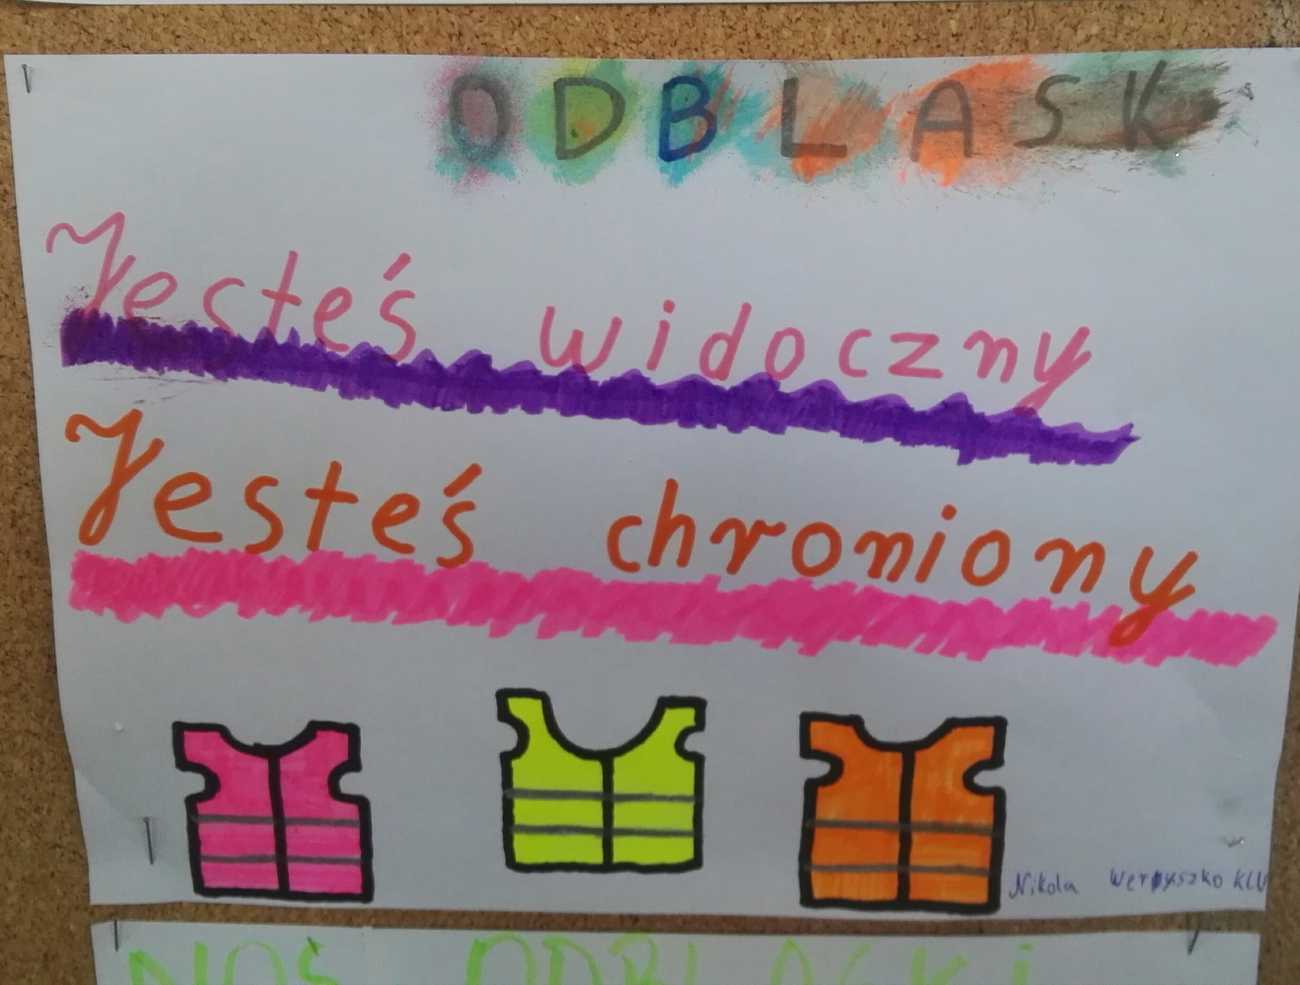 ODBLASK
Jesteś widoczny
Jesteś chroniony
Nikola
NOŚ ODBLASKI